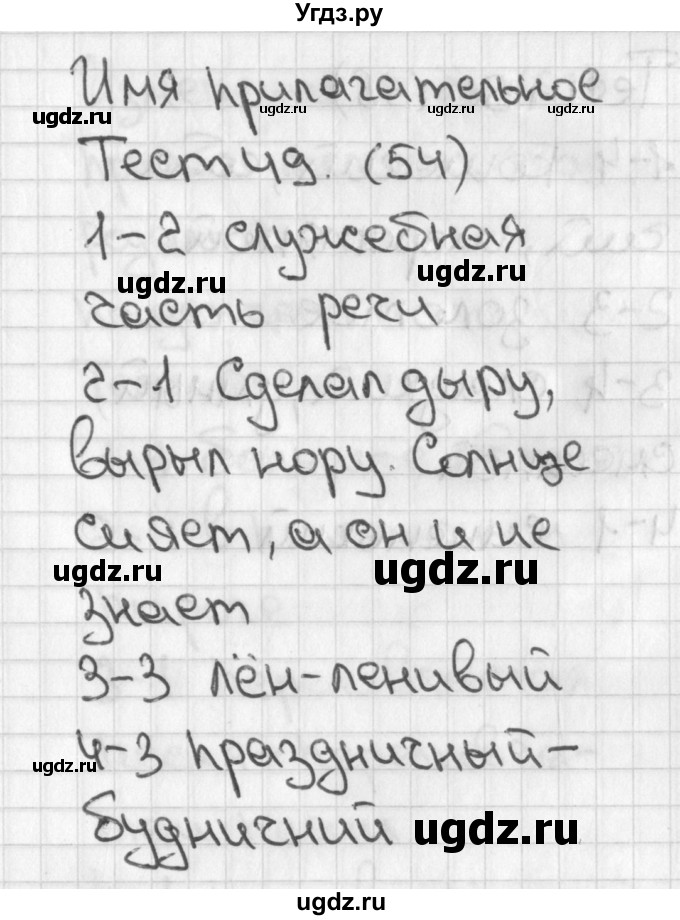 Угдз.ру
Имя прилагательное
ugdz.ru ugdz.ru ugdz.ru
Тест 49. (54)
1-2 служебная
ugdz.ru ugdz.ru
часть речи
2-1 Сделал дыру,
вырыл нору. Солнце
сияет, а он и не
ugdz.ru ugdz.ru
знает
3-3 лён-ленивый
4-3 праздничный-
ugdz.ru
будничний ugdz.ru
ugdz.ru